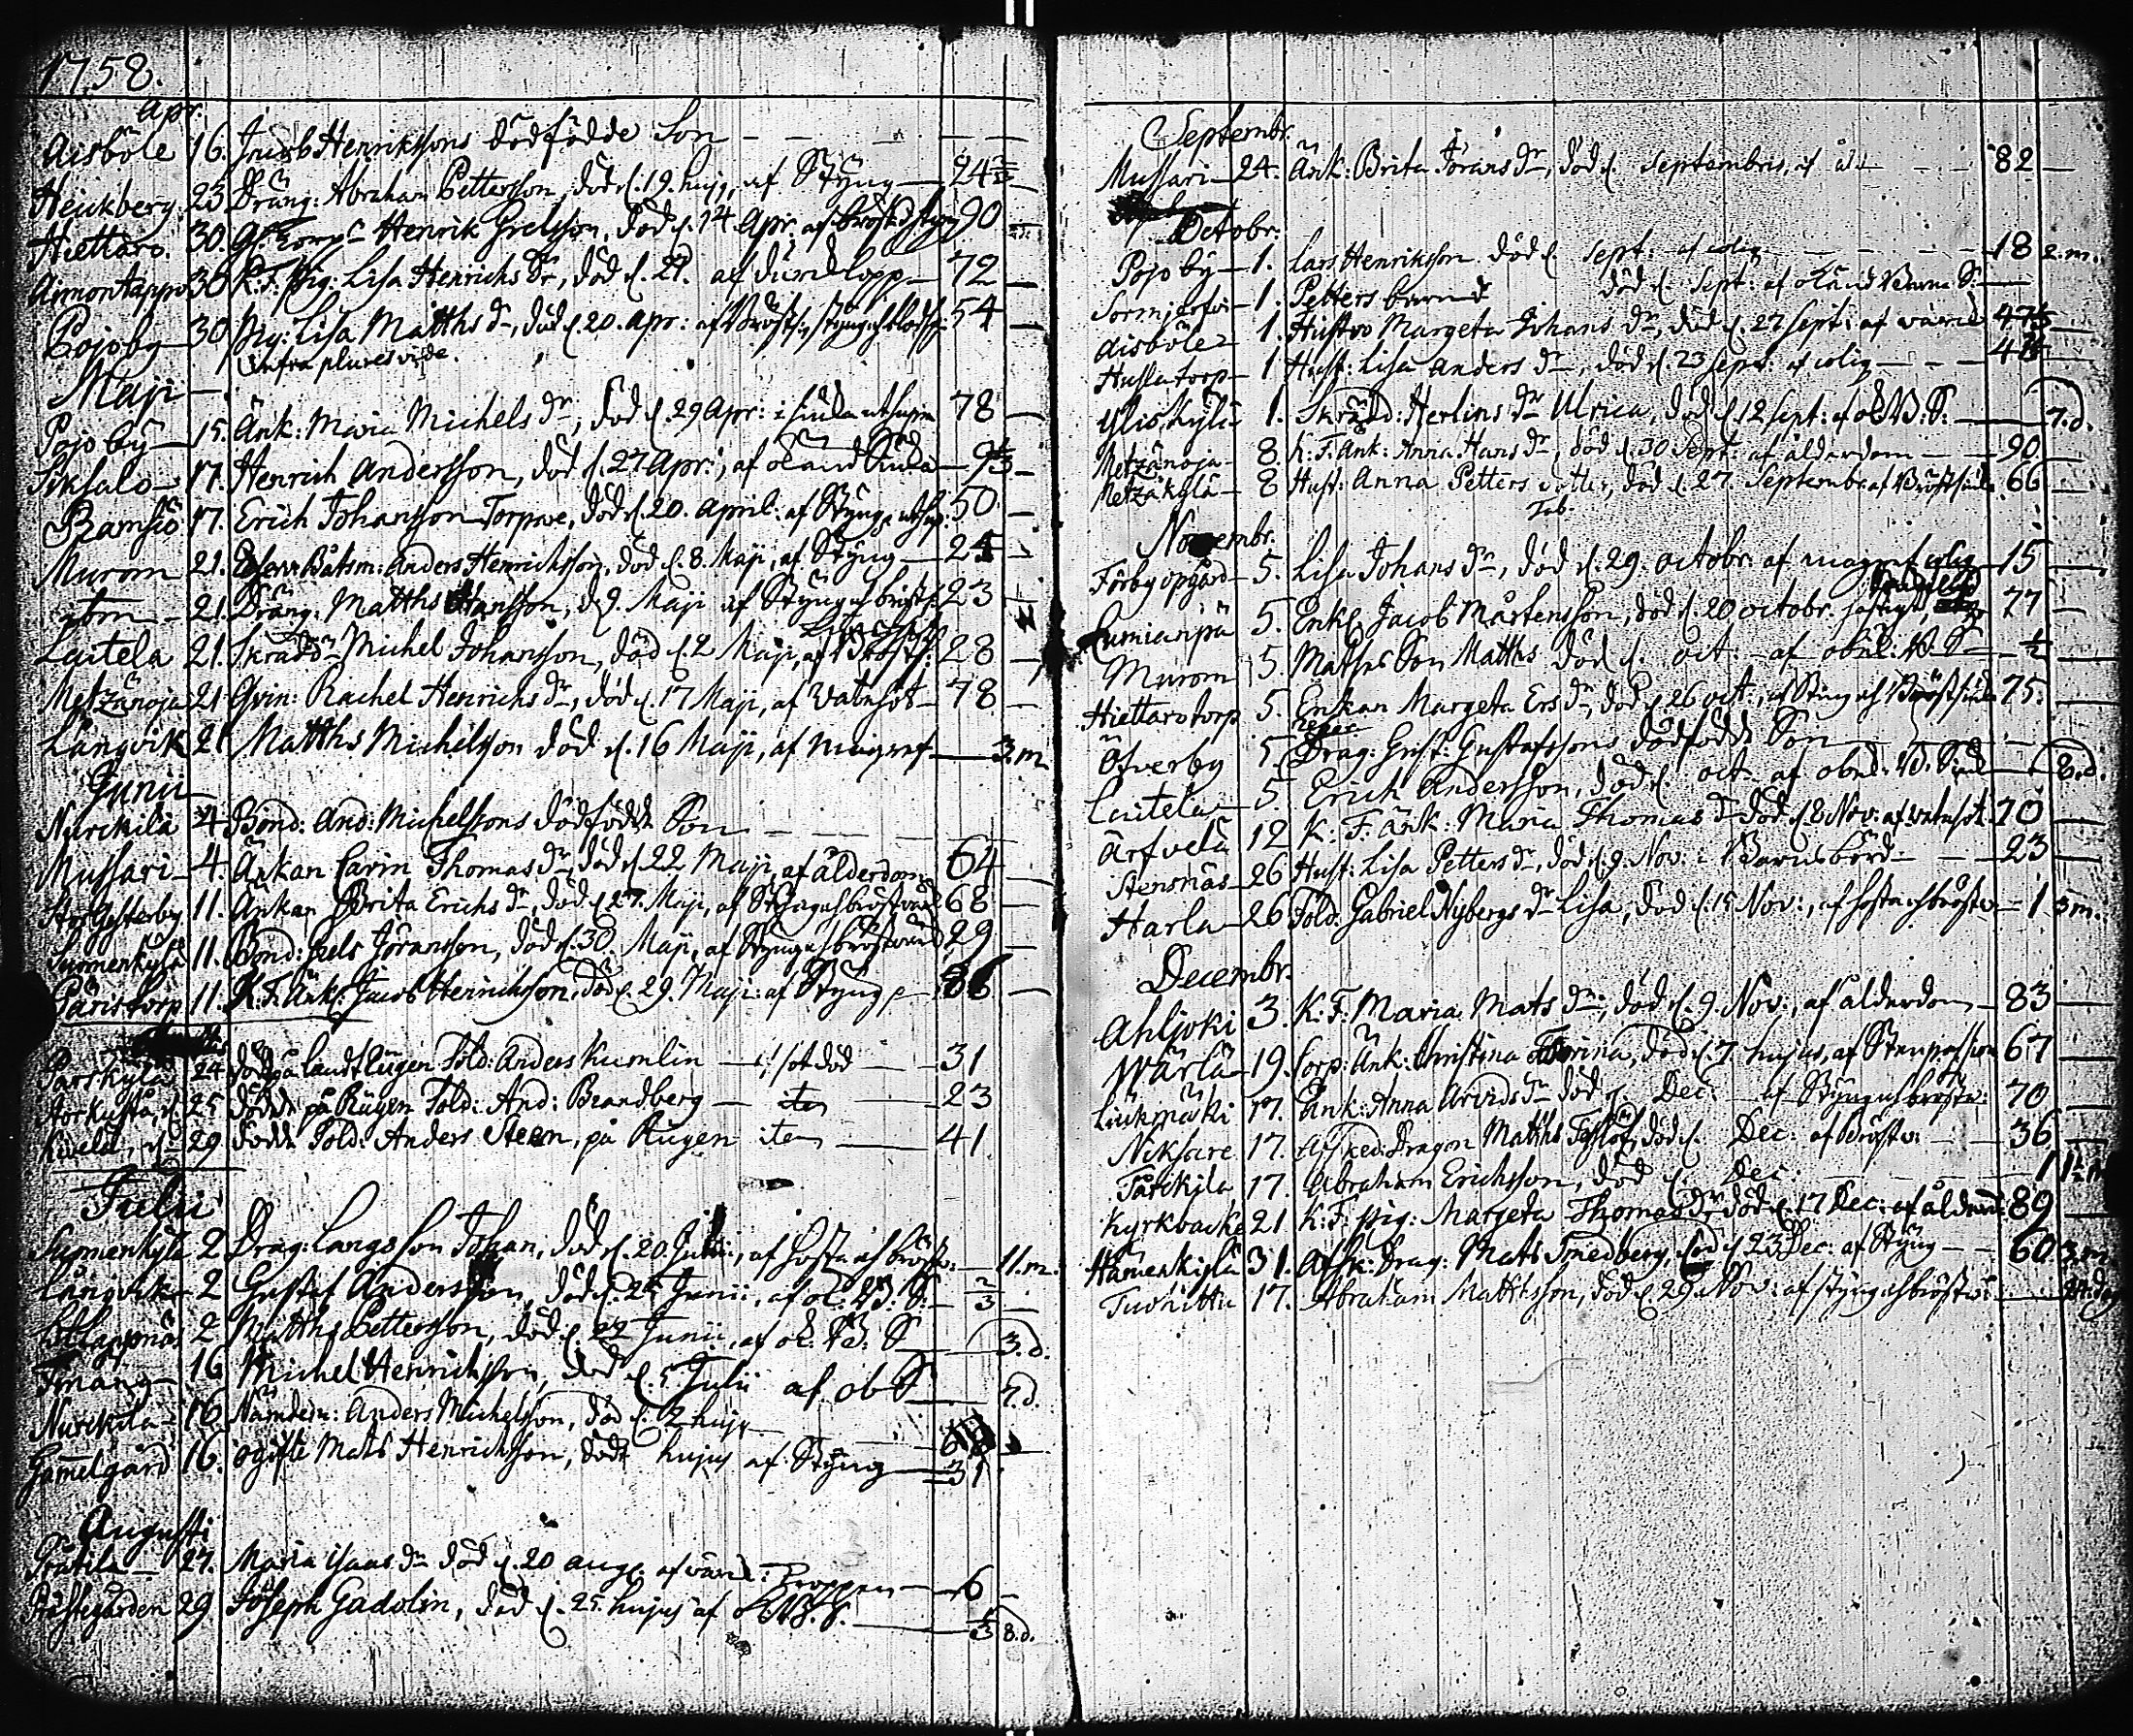 1758.
Apr.
Aisböle 16. Jacob Henrikssons dödfödde Son
Heickberg 23 Dräng: Abraham Pettersson, död d. 19. hujg, af Styng 24
Hiettaro. 30. Henrik Grelsson, död d. 14 Apr, af bröst 90
Aimontappo 30 K.F. Pig: Lisa Henrichs dr, död d. 27. af durchlopp 72
Pojo by 30 Pig: Lisa Matths dr, död d. 20. Apr: af Bröst 54
Infra plures vide.
Maji
Pojo by 15. Änk: Maria Michels dr, död d. 29 Apr: i 78
Siksalo 17. Henrich Andersson, död d. 27 Apr:, af
Ramsiö 17. Erich Johansson Torpare, död d. 20. April: af Styng 50
Murom 21. Båtsm: Anders Henrichsson, död d. 8. Maji, af Styng 24
itm 21. Dräng: Matths Hansson, d. 9. Maji af Styng och bröst 23
Laitela 21. Skrädd Michel Johansson, död d. 2 Maji, af Bröst 28
Metzänoja 21 Qvin: Rachel Henrichs dr, död d. 17 Maji, af Vatusot 78
Långvik 21 Matths Michelsson död d. 16 Maji, af 3. m.
Junii
Nurckila 4 Bond: And: Michelssons dödfödde Son
Mussari 4. Änkan Carin Thomas dr, död d. 22 Maji, af ålderdom 64
Gysterby 11. Änkan Brita Erichs dr, död d. 27. Maji, af Styng och bröstvärk 68
Sumenkylä 11. Bond: Grels Jöransson, död d. 30. Maji, af Styng och bröstvärk 29
Päristorp 11. K.F. Änkl: Jacob Henrichsson, död d. 29. Maji: af Styng 86
Pärskylä 24 död på landt Rügen Sold: Anders Kumlin sotdöd 31
25 dödde på Rügen Sold: And: Brandberg item 23
Kivelä, d. 29 dödde Sold: Anders Steen, på Rügen item 41.
Julii
Sumenkylä 2 Drag: Langs son Johan, död d. 20. Junii, af hosta och bröstv: 11. m.
Långvik 2 Gustaf Andersson, död d. 25 Junii, af ok: W: S: 2/3
Lillappnäs 2 Matths Pettersson, död d. 22 Junii, af ok: W: S 3. d.
16 Michel Henrichsson, död d. 5 Julii af ob S 7. d.
Nurckila 16 Nämdem: Anders Michelsson, död d. 2 hujg
Gamelgård 16. ogifte Mats Henrichsson, död hujus af Styng 31
Augusti
27. Maria Isaas dr död d. 20 aug: af värck: Kroppen 6
29. Joseph Gadolin, död d. 25. hujus af ok W. S. 8. d.
Septembr.
Mussari 24. Änk: Brita Jörans dr, död d. Septembris, af 82
Octobr:
Pojo by 1. Lars Henriksson död d. Sept: af 18 2. m.
1. Petters barn död d. Sept: af okänd Barna S:
Aisböle 1. Hustro Margeta Johans dr, död d. 27 Sept: af värck 47
Hulsatorp 1 Hust: Lisa Anders dr, död d. 23 Sept: af colig
Yliskylä 1. Skrädd: Herlins dr Ulrica, död d. 12 Sept: af ok B: S: 7. d.
Metzänoja 8. K: F. Änk: Anna Hans dr, död d. 30 Sept: af ålderdom 90
Metzäkylä 8 Hust: Anna Petters dotter, död d. 27 Septembr af Bröstsiuk 66
Novembr.
Förbyopgård 5. Lisa Johans dr, död d. 29. Octobr: af colig 15
5. Enkl: Jacob Mårtensson, död d. 20 Octobr. 77
Murom 5. Mathes Son Matths död d. Oct: af obnd: W. S 1/2
Hiettarotorp 5. Enkan Margeta Ers dr, död d. 26 oct:, af Styng och Bröstsiuk 75.
Åfverby 5. Drag: Grist: Gustafssons dödfödde Son
Laitela 5. Erich Andersson, död d. oct: af obnd: B. Siuk 8. d.
Ärfvelä 12 K: F. Änk: Maria Thomas dr död d. 8 Nov: af Vatusot. 70
Stensnäs 26 Hust: Lisa Petters dr, död d. 9. Nov: i Barnsbörd 23
Harla 26 Sold: Gabriel Nybergs dr Lisa, död d. 15 Nov:, af hosta och bröstv 1 3m.
Decembr.
Ahljoki 3. K: F: Maria Mats dr, död d. 9. Nov:, af ålderdom 83
Wärlä 19. Corp: Änk: Christina död d. 7. hujus, af Stenpassion 67
17. Änk: Anna Arvids dr död d. Dec: af Styng och bröstv: 70
Niksare 17. Afsked: Dragon Matths död d. Dec: af Bröstv: 36
Tärckylä 17. Abraham Erichsson, död d. Dec: 1
Kyrkbacka 21 K: F: pig: Margeta Thomas dr död d. 17 Dec: af ålderd 89
Hämenkylä 31. Afsk: Drag: Mats Smedberg, död d. 23 Dec: af Styng 60. 3.m
17. Abraham Matthsson, död d. 29. Nov: af styng och bröstv